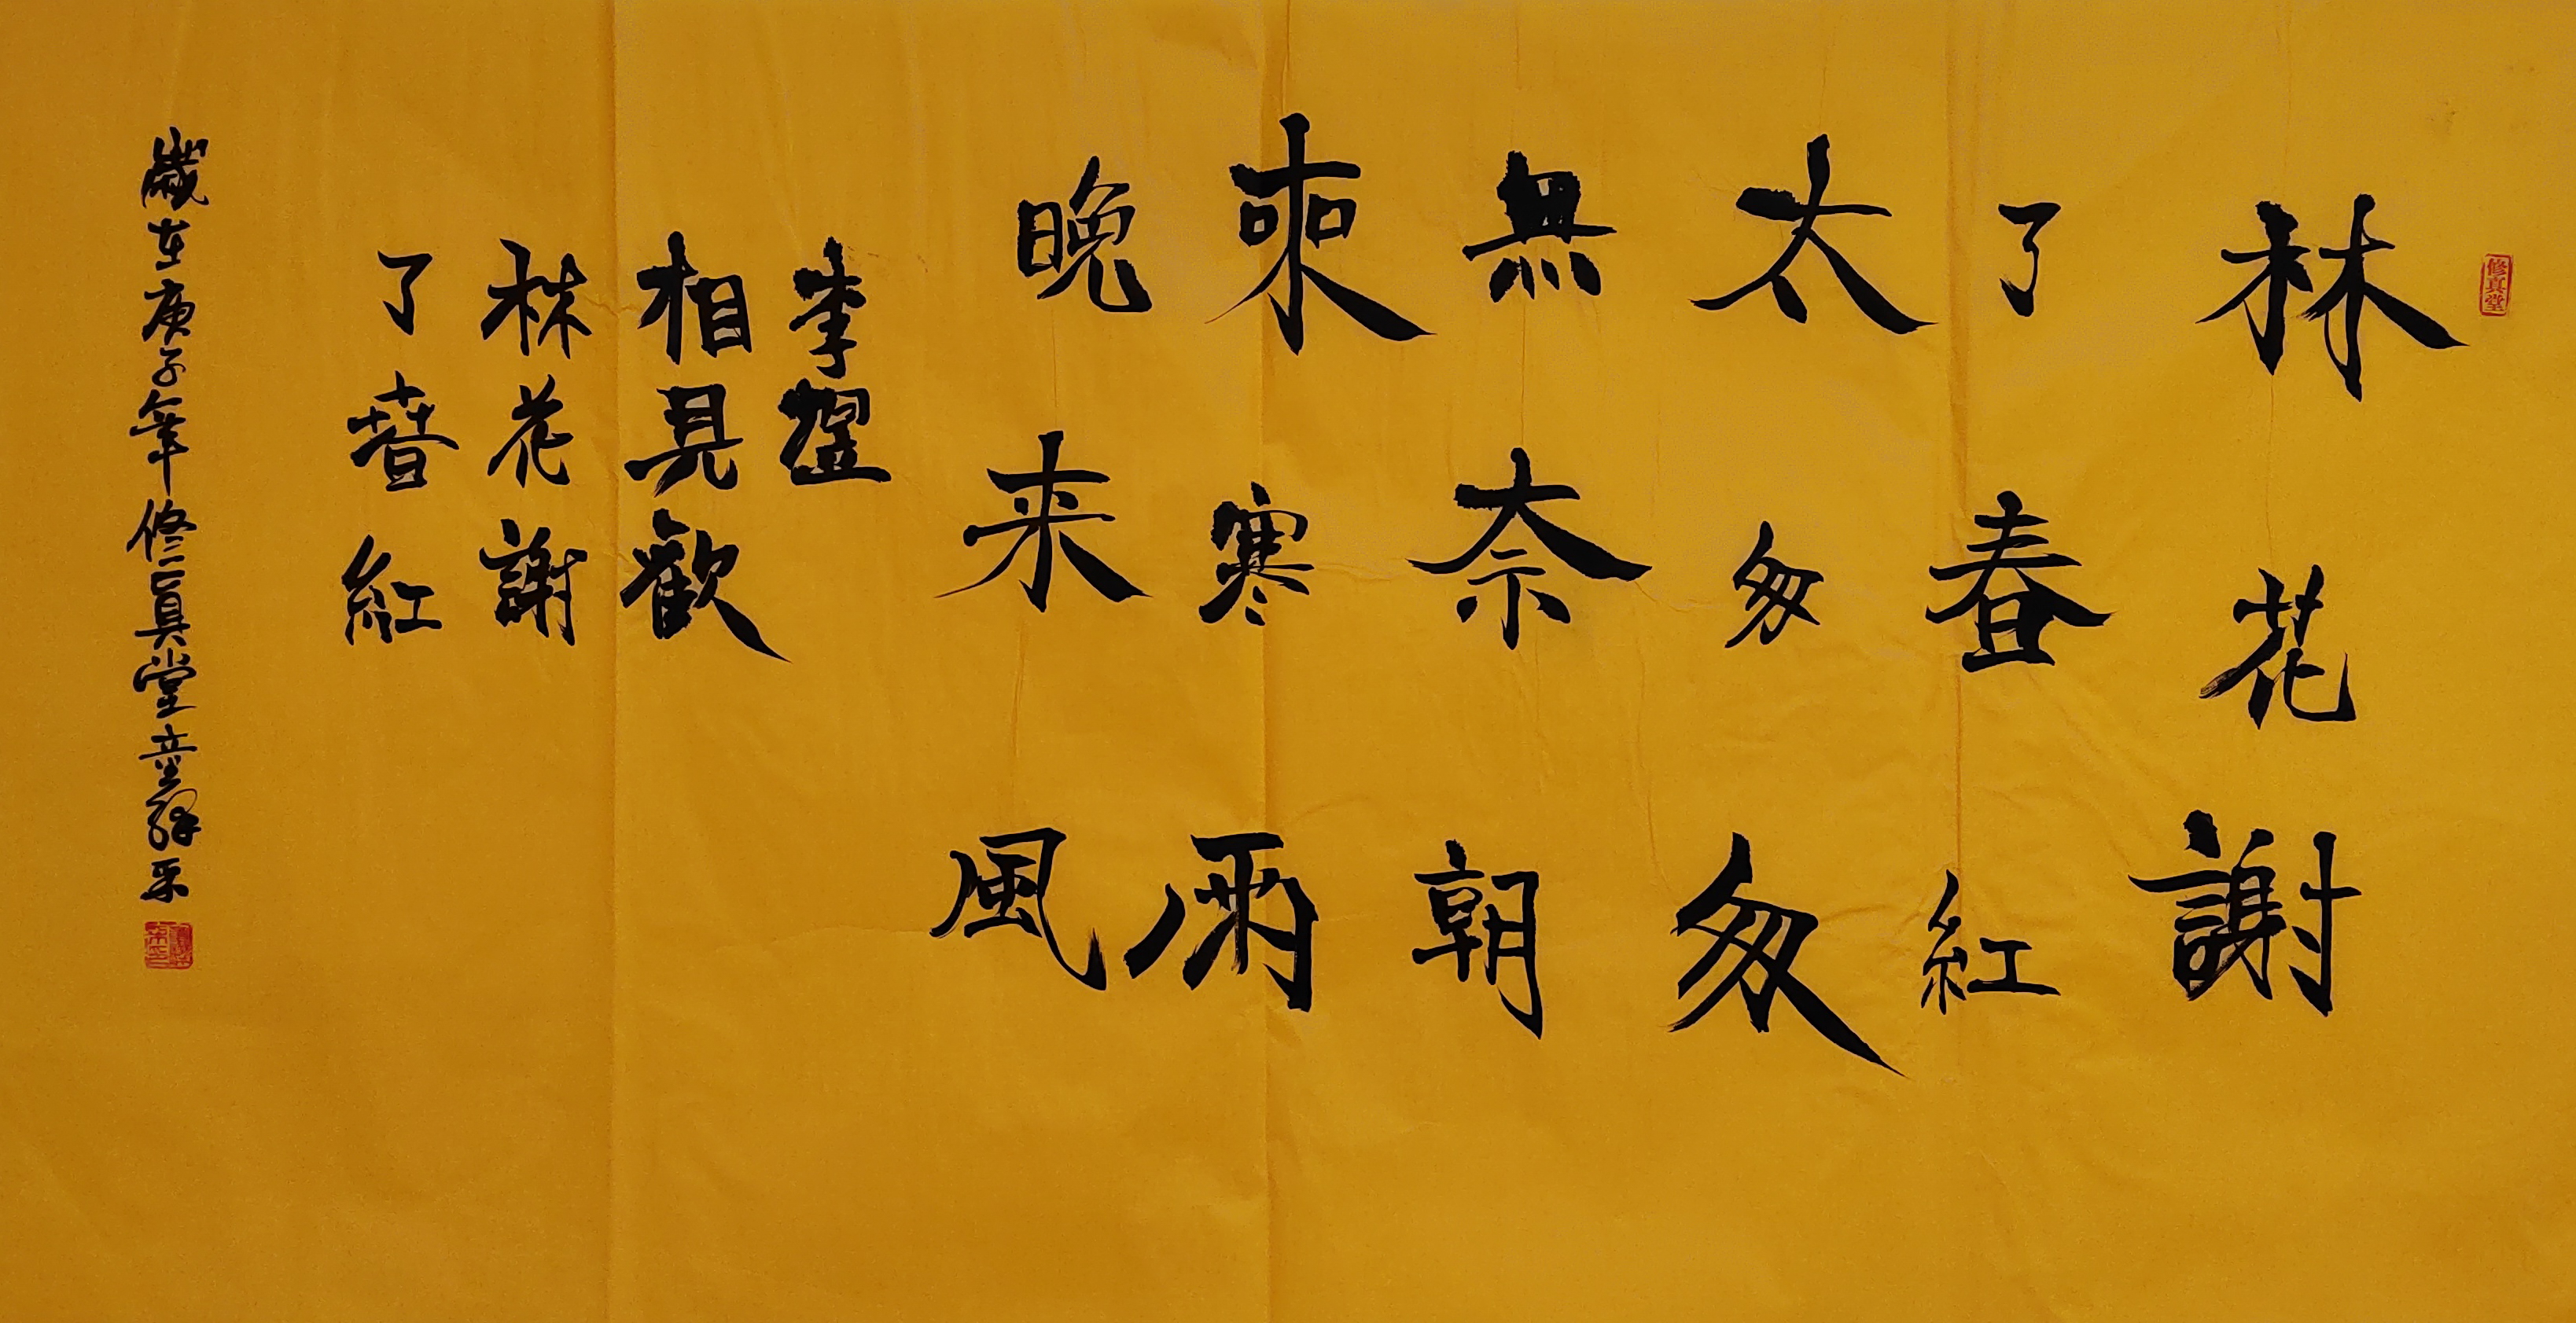 修真堂
林花謝
了春紅
太匆匆
無奈朝
來寒雨
晚来風
李煜
相見歡
林花謝
了春紅
歲在庚子年修真堂童